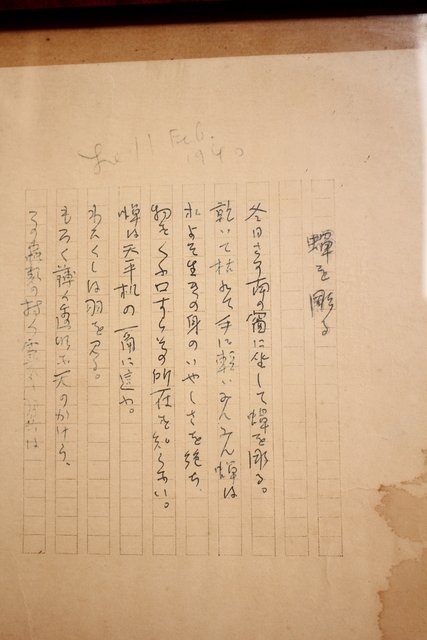 Le 11 Feb.
1940
蟬を彫る
冬日さす南の窗に坐して蟬を彫る。
乾いて枯れて手に軽いみんみん蟬は
およそ生きの身のいやしさを絶ち、
物をくふ口すらその所在を知らない。
蟬は天平机の一角に這ふ。
わたくしは羽を見る。
もろく薄く透明な天のかけら、
この蟲類の持つ霊気の翼は